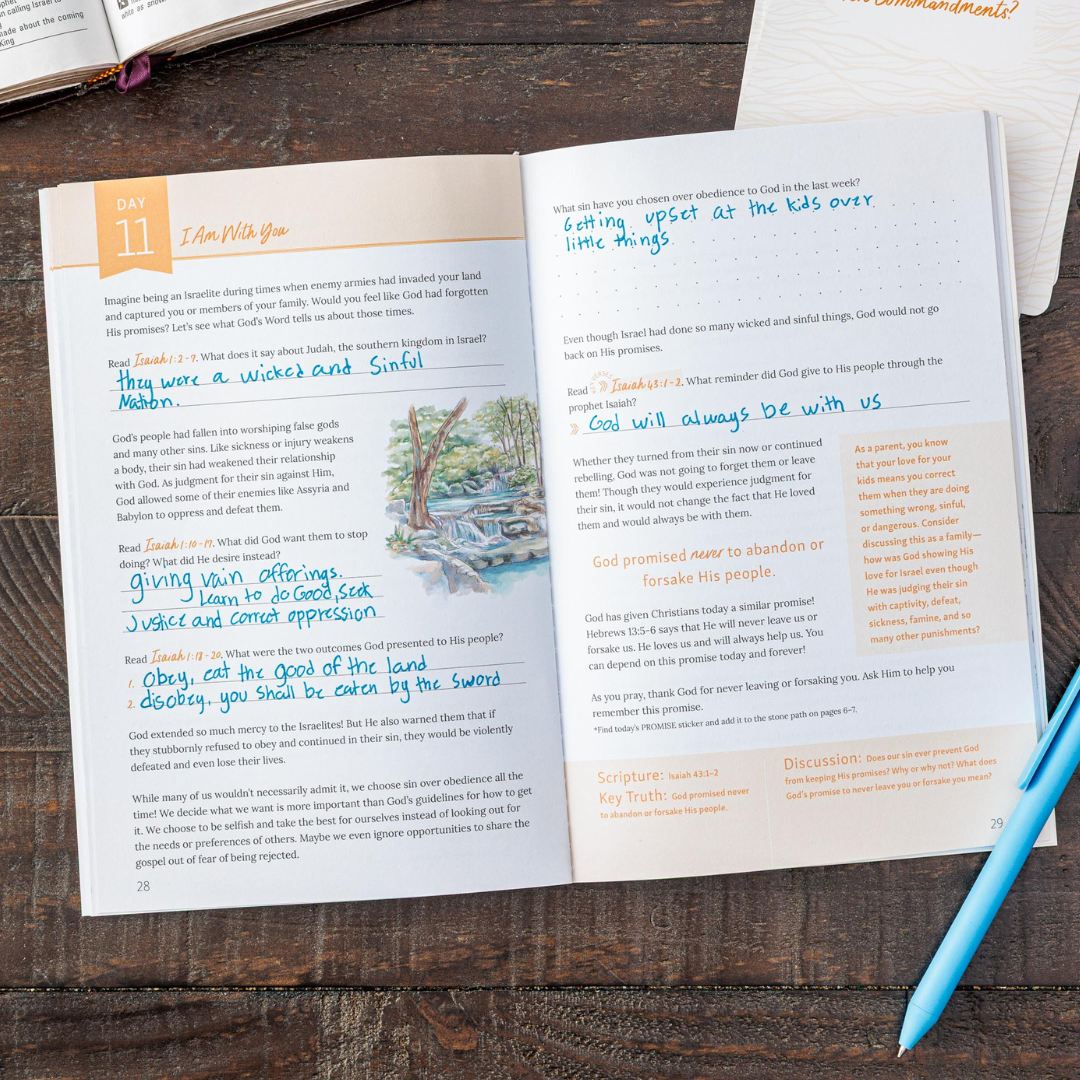 calling Israel to
made about the coming
King
white as snow
Commandments?
DAY
11
I Am With You
Imagine being an Israelite during times when enemy armies had invaded your land
and captured you or members of your family. Would you feel like God had forgotten
His promises? Let's see what God's Word tells us about those times.
Read Isaiah 1:2-7. What does it say about Judah, the southern kingdom in Israel?
they were a wicked and Sinful
Nation.
God's people had fallen into worshiping false gods
and many other sins. Like sickness or injury weakens
a body, their sin had weakened their relationship
with God. As judgment for their sin against Him,
God allowed some of their enemies like Assyria and
Babylon to oppress and defeat them.
Read Isaiah 1:10-17. What did God want them to stop
doing? What did He desire instead?
giving vain offerings.
Learn to do Good, Seek
Justice and correct oppression
Read Isaiah 1:18-20. What were the two outcomes God presented to His people?
1. Obey, eat the good of the land
2. disobey, you shall be eaten by the Sword
God extended so much mercy to the Israelites! But He also warned them that if
they stubbornly refused to obey and continued in their sin, they would be violently
defeated and even lose their lives.
While many of us wouldn't necessarily admit it, we choose sin over obedience all the
time! We decide what we want is more important than God's guidelines for how to get
it. We choose to be selfish and take the best for ourselves instead of looking out for
the needs or preferences of others. Maybe we even ignore opportunities to share the
gospel out of fear of being rejected.
28
What sin have you chosen over obedience to God in the last week?
Getting upset at the kids over
little things
Even though Israel had done so many wicked and sinful things, God would not go
back on His promises.
Read Isaiah 43:1-2. What reminder did God give to His people through the
prophet Isaiah?
God will always be with us
Whether they turned from their sin now or continued
rebelling, God was not going to forget them or leave
them! Though they would experience judgment for
their sin, it would not change the fact that He loved
them and would always be with them.
God promised never to abandon or
forsake His people.
God has given Christians today a similar promise!
Hebrews 13:5-6 says that He will never leave us or
forsake us. He loves us and will always help us. You
can depend on this promise today and forever!
As a parent, you know
that your love for your
kids means you correct
them when they are doing
something wrong, sinful,
or dangerous. Consider
discussing this as a family—
how was God showing His
love for Israel even though
He was judging their sin
with captivity, defeat,
sickness, famine, and so
many other punishments?
As you pray, thank God for never leaving or forsaking you. Ask Him to help you
remember this promise.
*Find today's PROMISE sticker and add it to the stone path on pages 6-7.
Scripture: Isaiah 43:1-2
Key Truth: God promised never
to abandon or forsake His people.
Discussion: Does our sin ever prevent God
from keeping His promises? Why or why not? What does
God's promise to never leave you or forsake you mean?
29